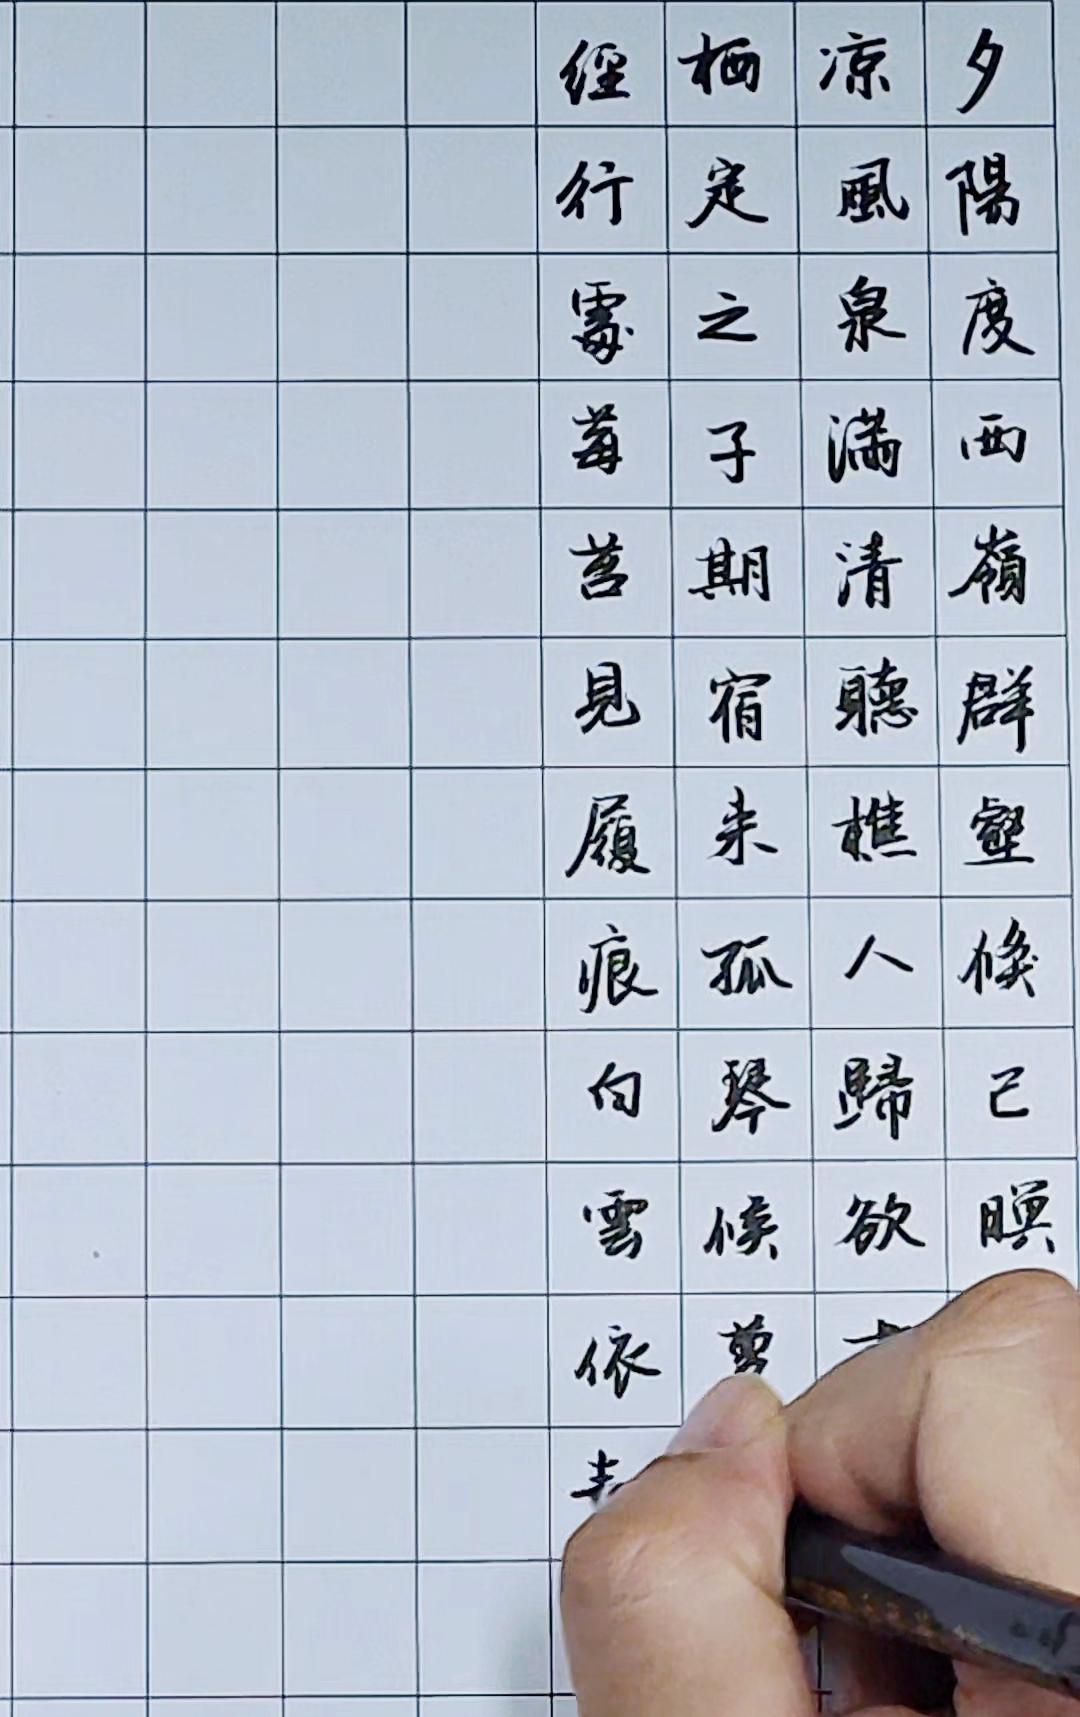 夕陽度西嶺群壑倏已暝
凉風泉滿清聽樵人歸欲
栖定之子期宿来孤琴候
經行處莓苔見履痕白雲依